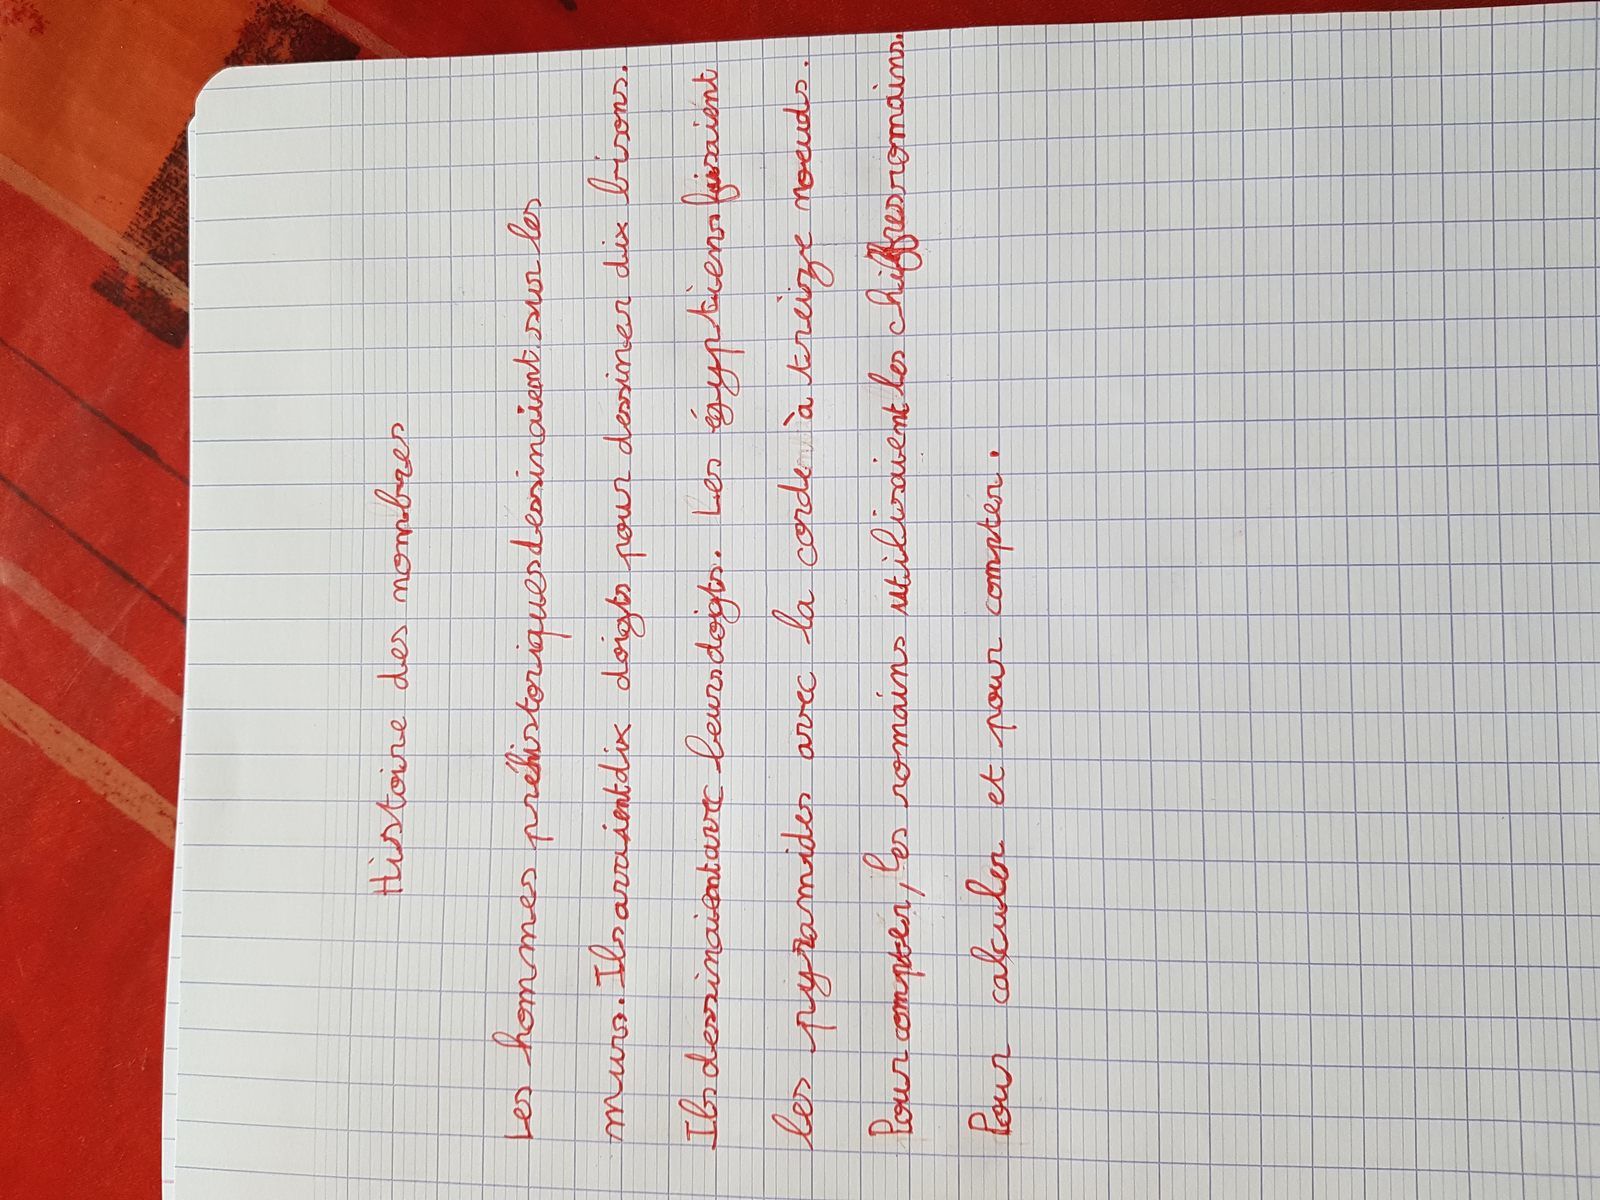 Histoire des nombres
Les hommes préhistoriques dessinaient sur les
murs. Ils avaient dix doigts pour dessiner dix bisons.
Ils dessinaient avec leurs doigts. Les égyptiens faisaient
les pyramides avec la corde à treize nœuds.
Pour compter, les romains utilisaient les chiffres romains.
Pour calculer et pour compter.